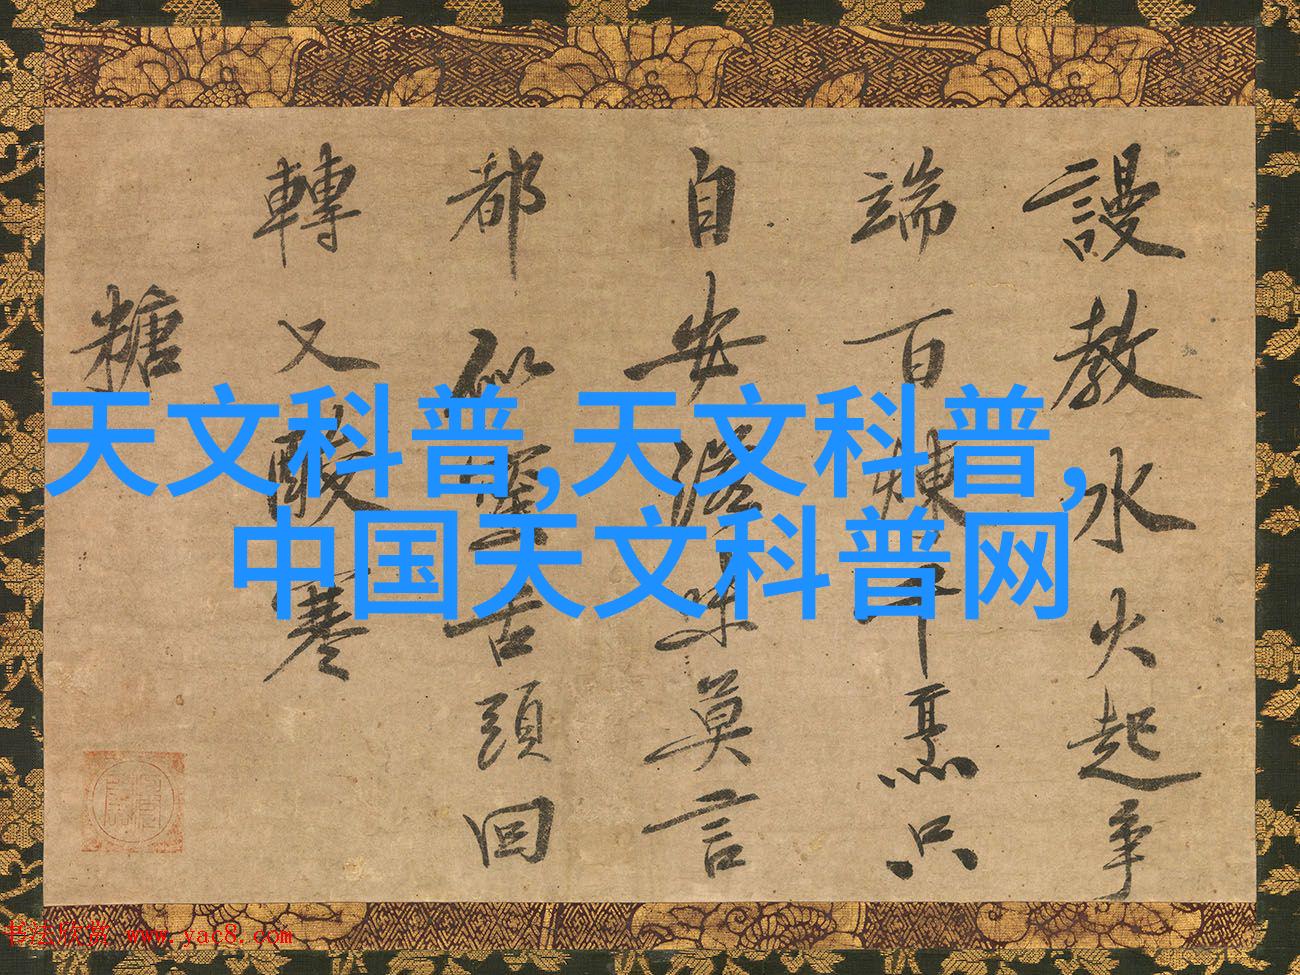 天文科普,天文科普,
中国天文科普网
謾教水火起爭
端百煉千熏只
自安滋味莫言
都似蜜舌頭回
轉又酸寒
糖
书法欣赏 www.yac8.com